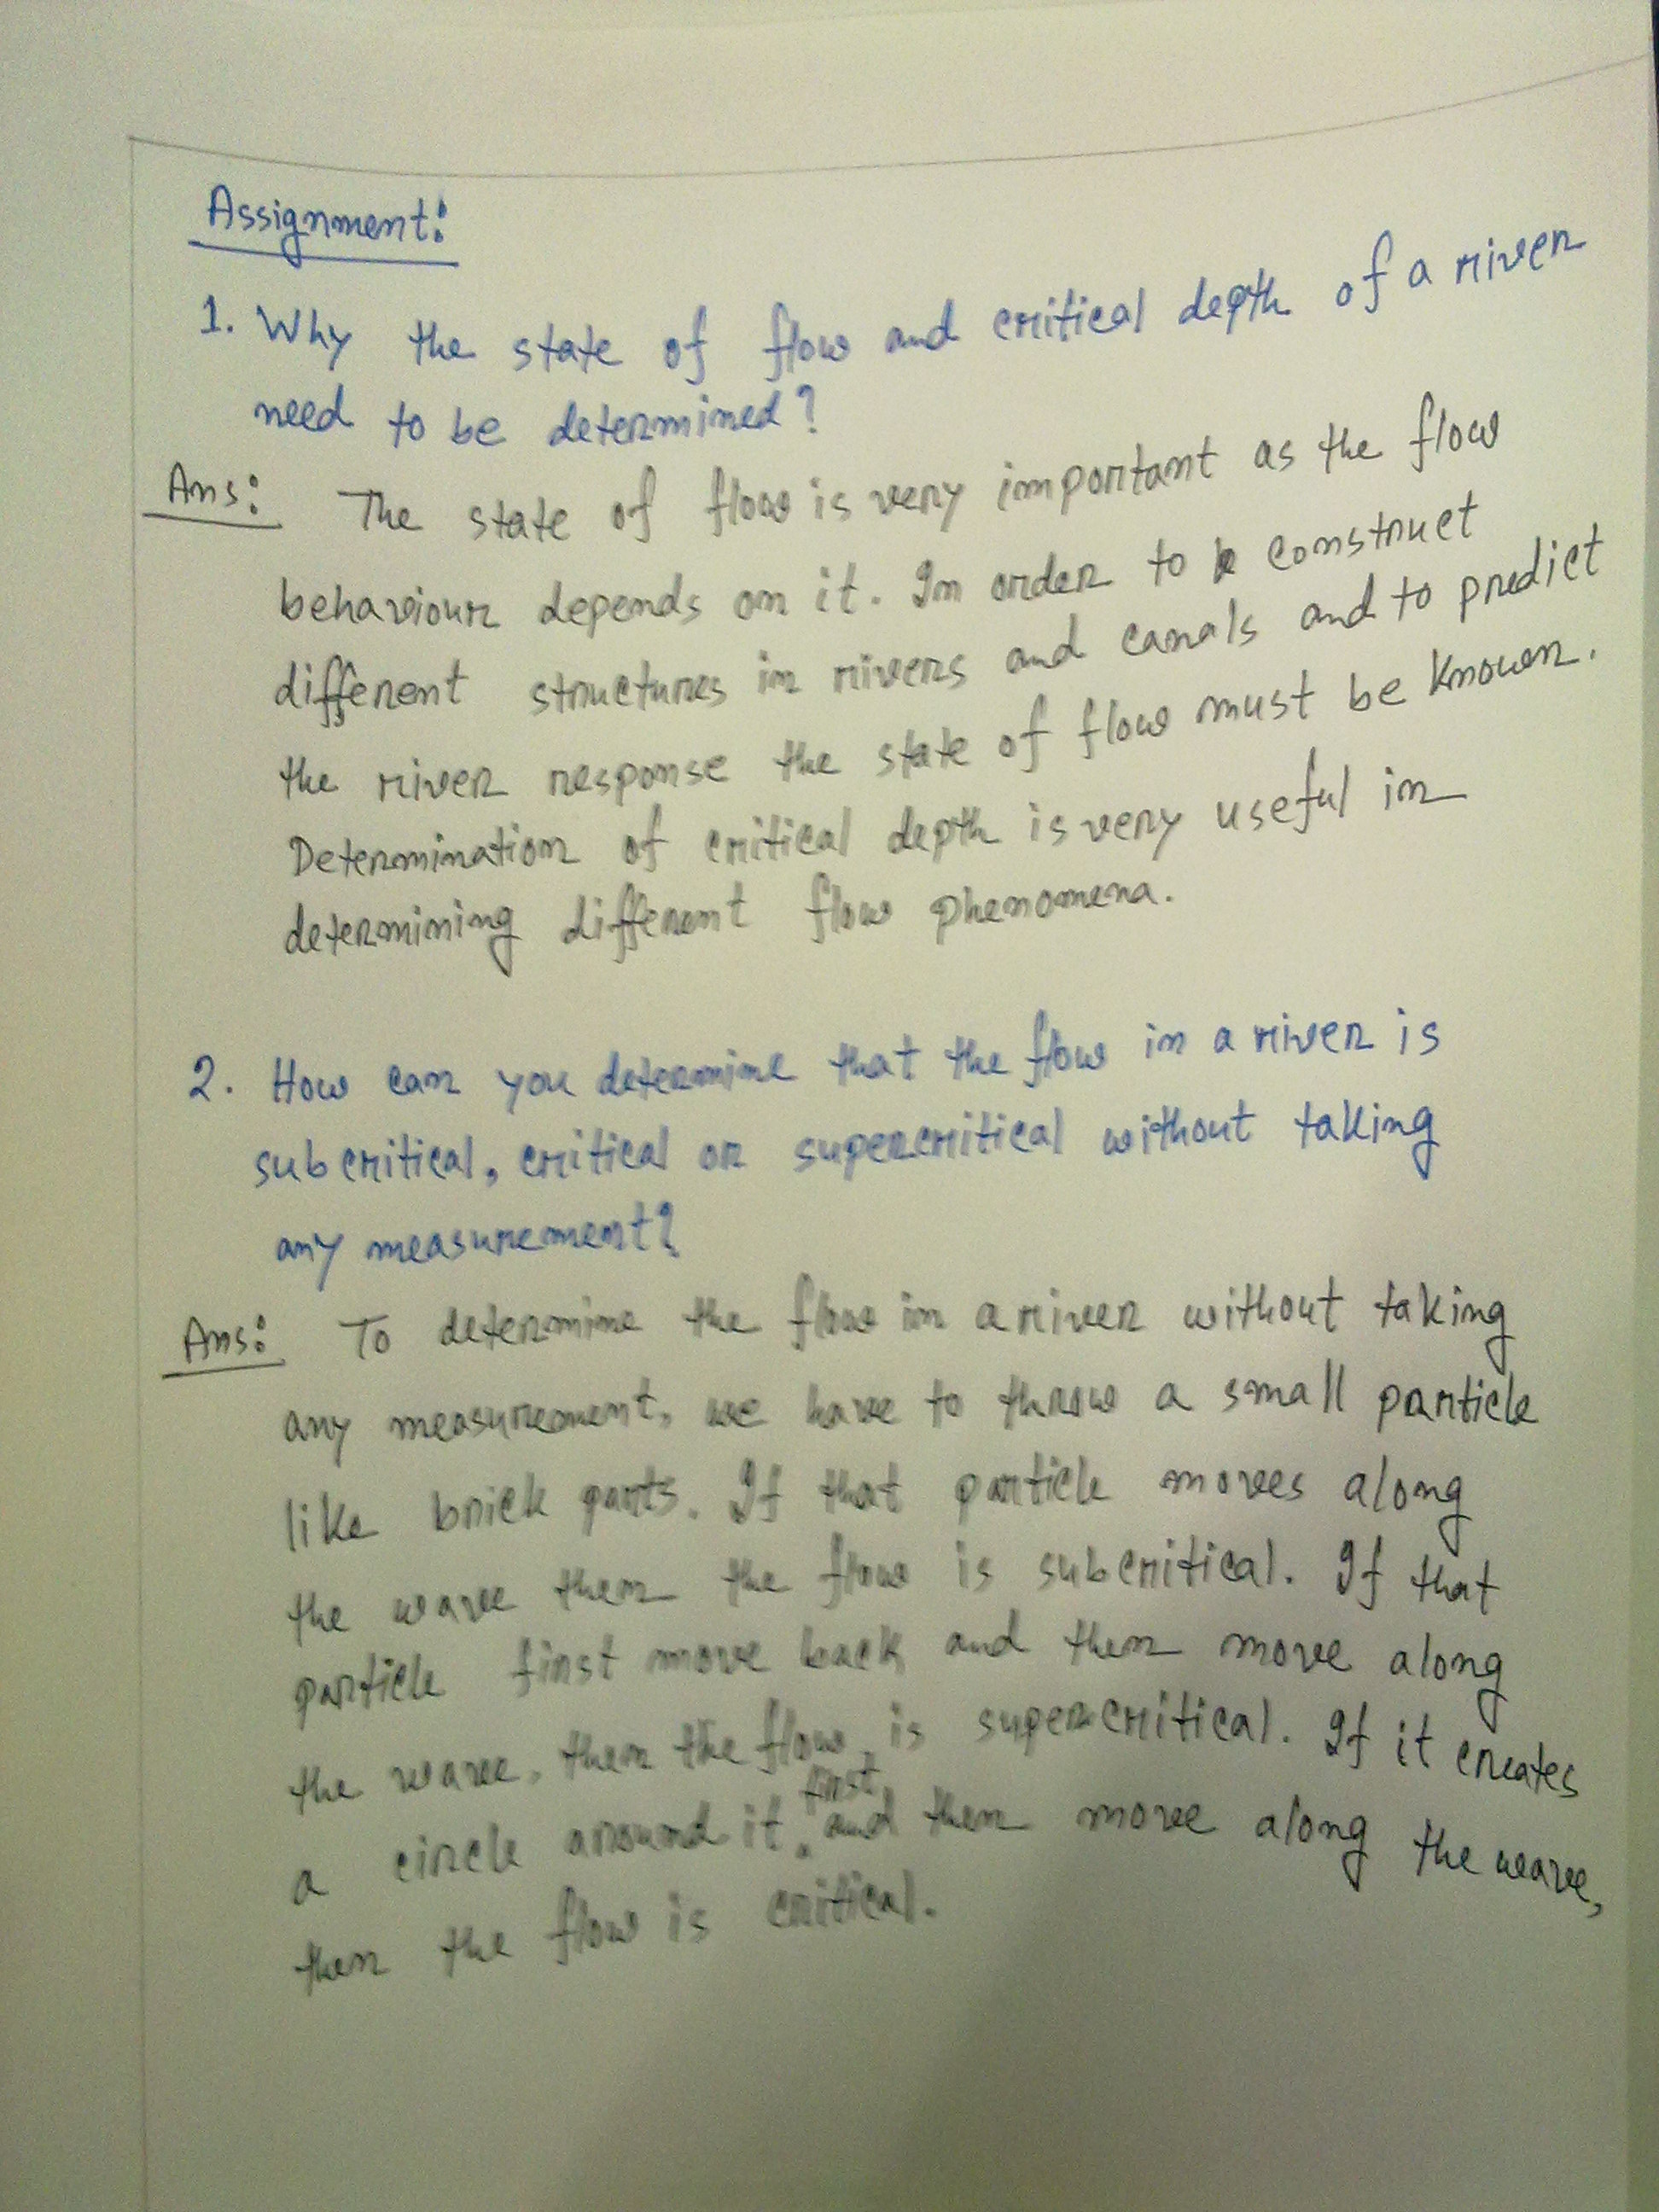 Assignment:
1. Why the state of flow and critical depth of a river
need to be determined?
Ans: The state of flow is very important as the flow
behaviour depends on it. In order to construct
different structures in rivers and canals and to predict
the river response the state of flow must be known.
Determination of critical depth is very useful in
determining different flow phenomena.
2. How can you determine that the flow in a river is
subcritical, critical or supercritical without taking
any measurement?
Ans: To determine the flow in a river without taking
any measurement, we have to throw a small particle
like brick parts. If that particle moves along
the wave then the flow is subcritical. If that
particle first move back and then move along
the wave, then the flow is supercritical. If it creates
a circle around it first and then move along the wave,
then the flow is critical.